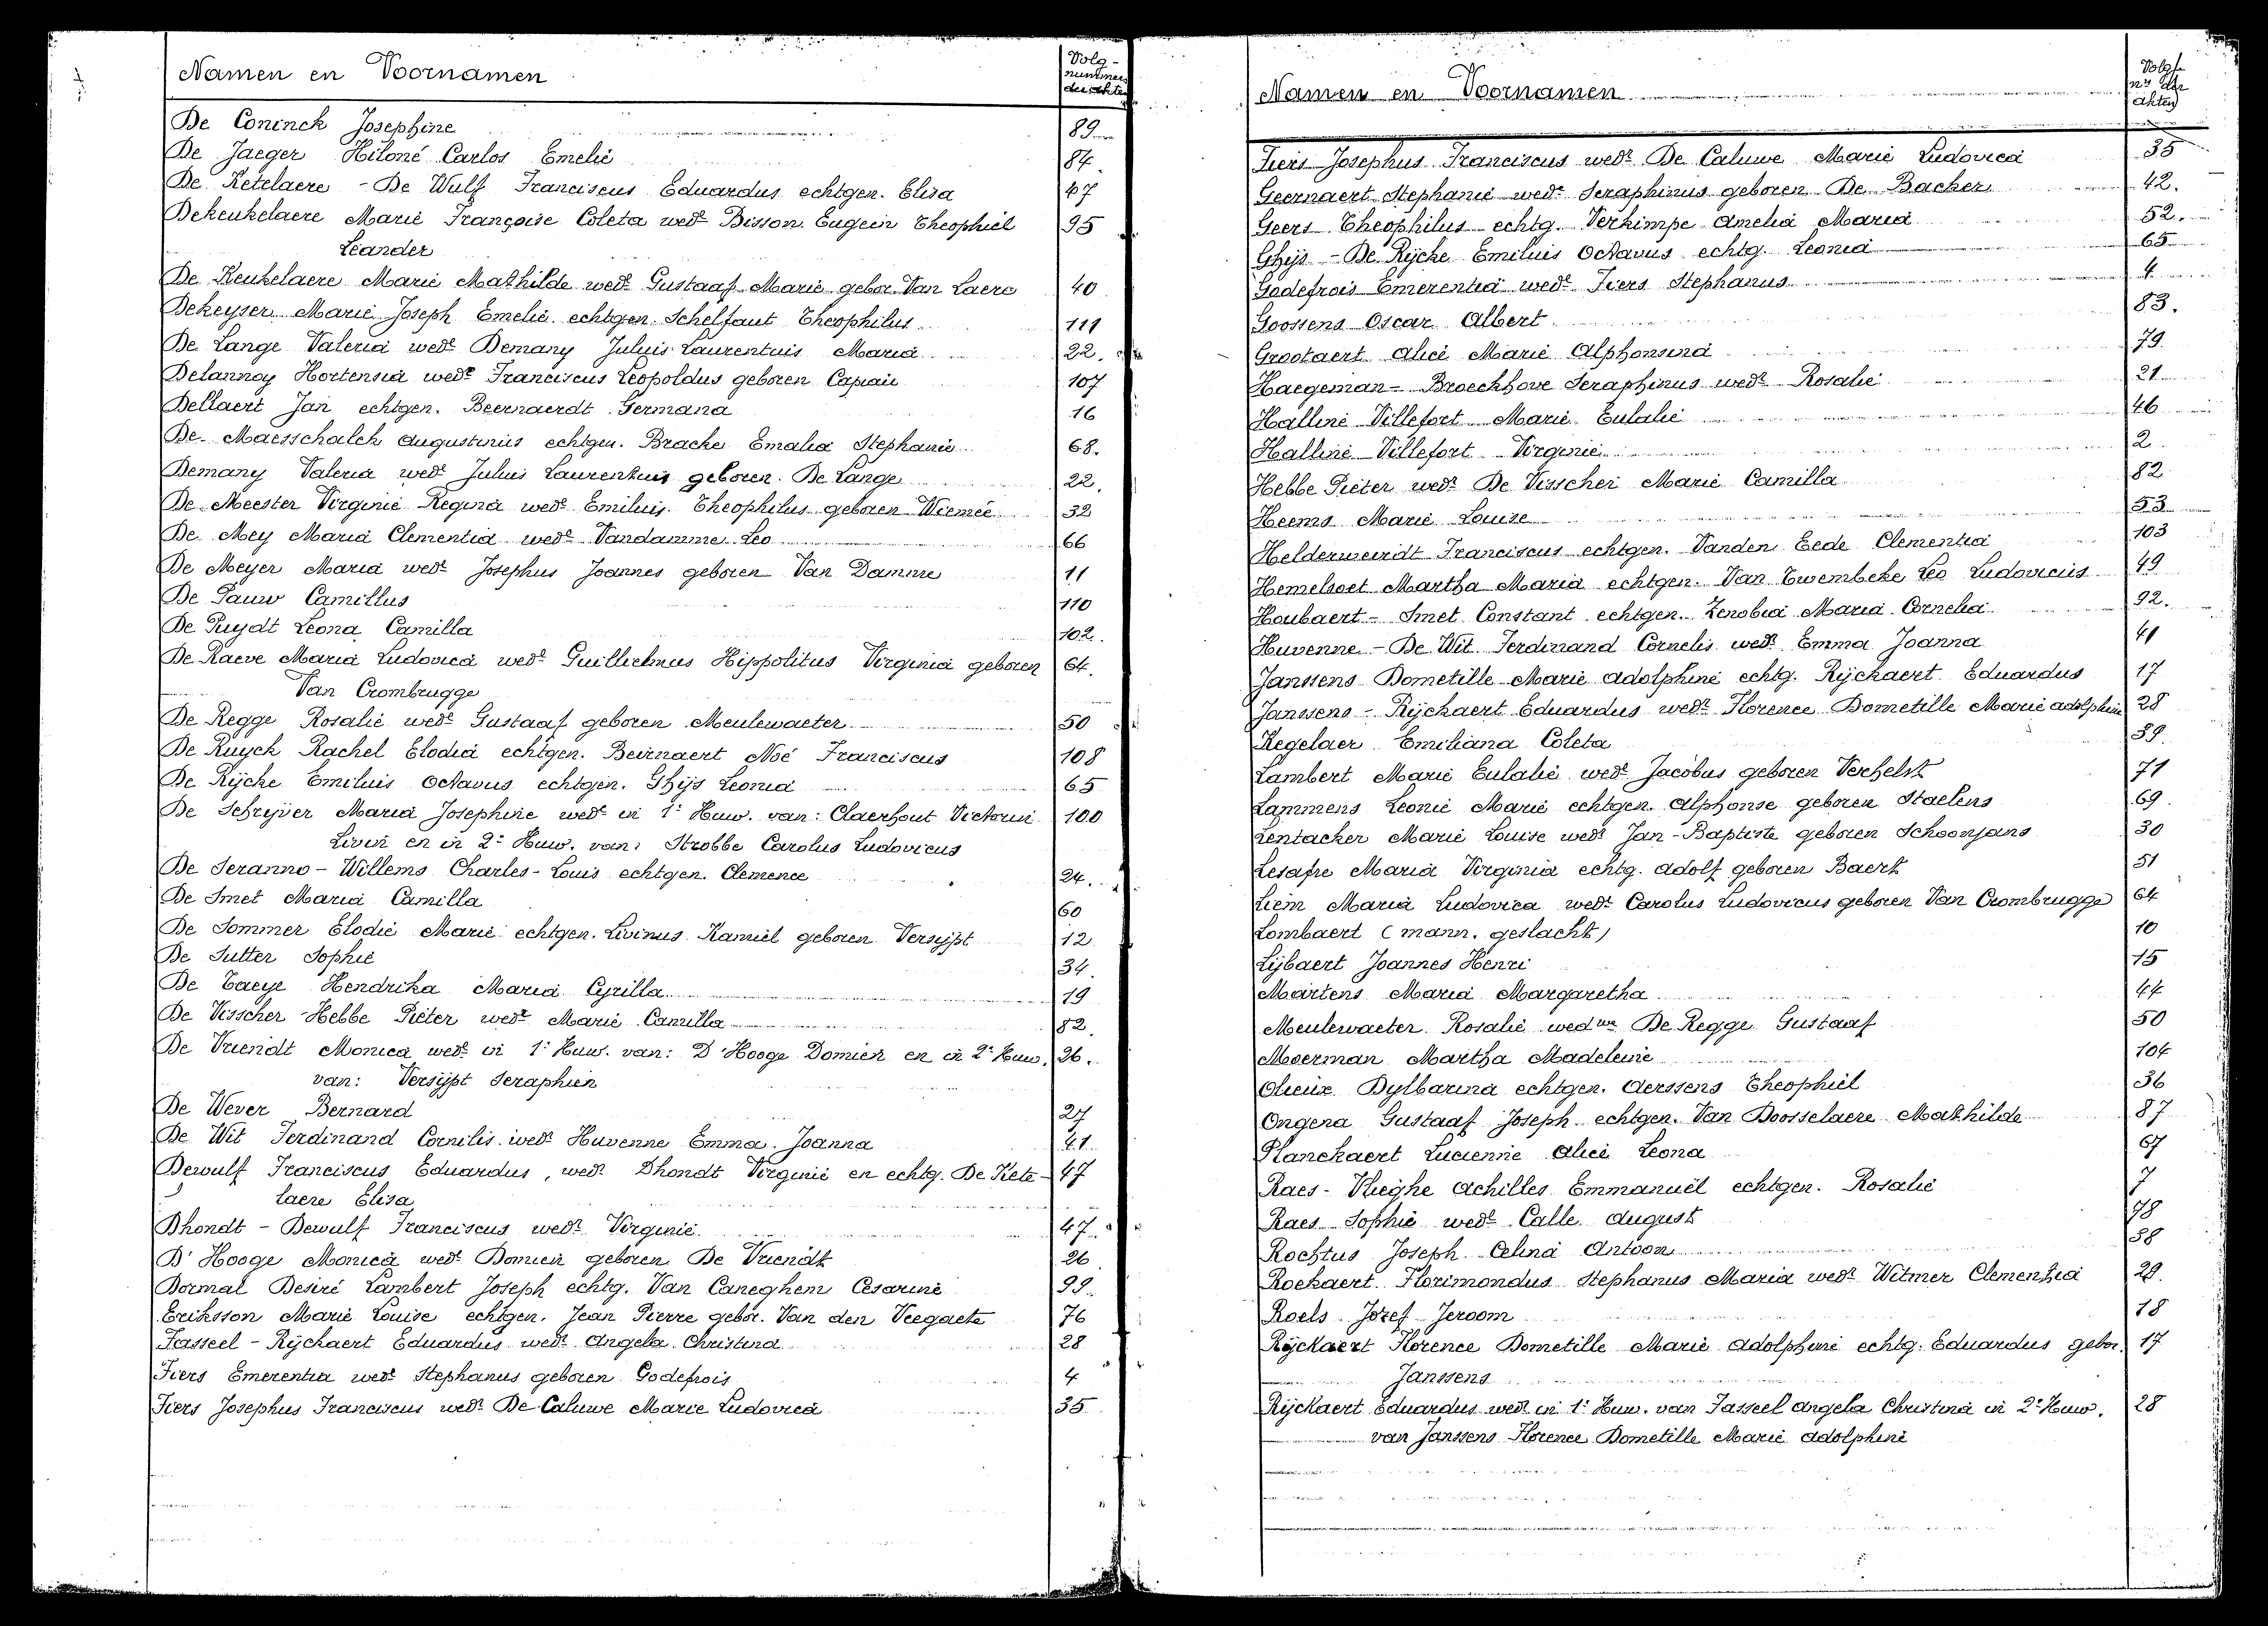 Namen en Voornamen
Volg-
nummer
der akten
De Coninck Josephine 89
De Jaeger Hiloné Carlos Emelie 84.
De Ketelaere - De Wulf Franciscus Eduardus echtgen. Elisa 47
Dekeukelaere Marie Françoise Coleta wedᵉ Bisson Eugein Theophiel 95
Leander
De Keukelaere Marie Mathilde wedᵉ Gustaaf Marie gebor. Van Laere 40
Dekeyser Marie Joseph Emelie echtgen. Schelfaut Theophilus 111
De Lange Valeria wedᵉ Demany Julius Laurentius Maria 22.
Delannoy Hortensia wedᵉ Franciscus Leopoldus geboren Capiau 107
Dellaert Jan echtgen. Beernaerdt Germana 16
De Maesschalck Augustinus echtgen. Bracke Emalia Stephanie 68.
Demany Valeria wedᵉ Julius Laurentius geboren De Lange 22.
De Meester Virginie Regina wedᵉ Emilius Theophilus geboren Wiemeé 32
De Mey Maria Clementia wedᵉ Vandamme Leo 66
De Meyer Maria wedᵉ Josephus Joannes geboren Van Damme 11
De Pauw Camillus 110
De Puydt Leona Camilla 102.
De Raeve Maria Ludovica wedᵉ Guillielmus Hippolitus Virginia geboren 64.
Van Crombrugge
De Regge Rosalie wedᵉ Gustaaf geboren Meulewaeter 50
De Ruyck Rachel Elodia echtgen. Beirnaert Noé Franciscus 108
De Rijcke Emilius Octavus echtgen. Ghijs Leonia 65
De Schrijver Maria Josephine wedᵉ in 1ᵉ Huw. van: Claerhout Victorin 100
Livin en in 2ᵉ Huw. van: Strobbe Carolus Ludovicus
De Seranno - Willems Charles-Louis echtgen. Clemence 24.
De Smet Maria Camilla 60
De Sommer Elodie Marie echtgen. Livinus Kamiel geboren Versijpt 12
De Sutter Sophie 34.
De Taeye Hendrika Maria Cyrilla 19
De Visscher-Hebbe Pieter wedᵉ Marie Camilla 82.
De Vriendt Monica wedᵉ in 1ᵉ Huw. van: D'Hooge Domien en in 2ᵉ Huw. 26.
van: Versijpt Seraphien
De Wever Bernard 27
De Wit Ferdinand Cornelis wedʳ Huvenne Emma Joanna 41
Dewulf Franciscus Eduardus, wedʳ Dhondt Virginie en echtg. De Kete- 47
laere Elisa
Dhondt - Dewulf Franciscus wedʳ Virginie 47.
D'Hooge Monica wedᵉ Domien geboren De Vriendt 26
Dormal Desiré Lambert Joseph echtg. Van Caneghem Cesarine 99.
Eriksson Marie Louise echtgen. Jean Pierre gebor. Van den Veegaete 76
Fasseel - Rijckaert Eduardus wedʳ Angela Christina 28
Fiers Emerentia wedᵉ Stephanus geboren Godefrois 4
Fiers Josephus Franciscus wedʳ De Caluwe Marie Ludovica 35
Namen en Voornamen
Volg-
nʳˢ der
akten
Fiers Josephus Franciscus wedʳ De Caluwe Marie Ludovica 35
Geernaert Stephanie wedᵉ Seraphinus geboren De Backer 42.
Geers Theophilus echtg. Verkimpe Amelia Maria 52.
Ghijs - De Rijcke Emilius Octavus echtg. Leonia 65
Godefrois Emerentia wedᵉ Fiers Stephanus 4
Goossens Oscar Albert 83.
Grootaert Alice Marie Alphonsina 79
Haegeman - Broeckhove Seraphinus wedʳ Rosalie 21
Halline Villefort Marie Eulalie 46
Halline Villefort Virginie 2
Hebbe Pieter wedʳ De Visscher Marie Camilla 82
Heems Marie Louise 53
Helderweirdt Franciscus echtgen. Vanden Eede Clementia 103
Hemelsoet Martha Maria echtgen. Van Twembeke Leo Ludovicus 49
Houbaert - Smet Constant echtgen. Zenobia Maria Cornelia 92.
Huvenne - De Wit Ferdinand Cornelis wedʳ Emma Joanna 41
Janssens Dometille Marie Adolphine echtg. Rijckaert Eduardus 17
Janssens - Rijckaert Eduardus wedʳ Florence Dometille Marie Adolphine 28
Kegelaer Emiliana Coleta 39
Lambert Marie Eulalie wedᵉ Jacobus geboren Verhelst 71
Lammens Leonie Marie echtgen. Alphonse geboren Staelens 69
Lentacker Marie Louise wedᵉ Jan-Baptiste geboren Schoonjans 30
Lesafre Maria Virginia echtg. Adolf geboren Baert 51
Liem Maria Ludovica wedᵉ Carolus Ludovicus geboren Van Crombrugge 64
Lombaert (mann. geslacht) 10
Lijbaert Joannes Henri 15
Martens Maria Margaretha 44
Meulewaeter Rosalie wedʷᵉ De Regge Gustaaf 50
Moerman Martha Madeleine 104
Olieux Dylbarina echtgen. Aerssens Theophiel 36
Ongena Gustaaf Joseph echtgen. Van Doosselaere Mathilde 87
Planckaert Lucienne Alice Leona 67
Raes - Vlieghe Achilles Emmanuël echtgen. Rosalie 7
Raes Sophie wedᵉ Calle August 78
Rochtus Joseph Celina Antoon 38
Roekaert Florimondus Stephanus Maria wedʳ Witmer Clementia 29.
Roels Jozef Jeroom 18
Rijckaert Florence Dometille Marie Adolphine echtg. Eduardus gebor. 17
Janssens
Rijckaert Eduardus wedʳ in 1ᵉ Huw. van Fasseel Angela Christina in 2ᵉ Huw. 28
van Janssens Florence Dometille Marie Adolphine